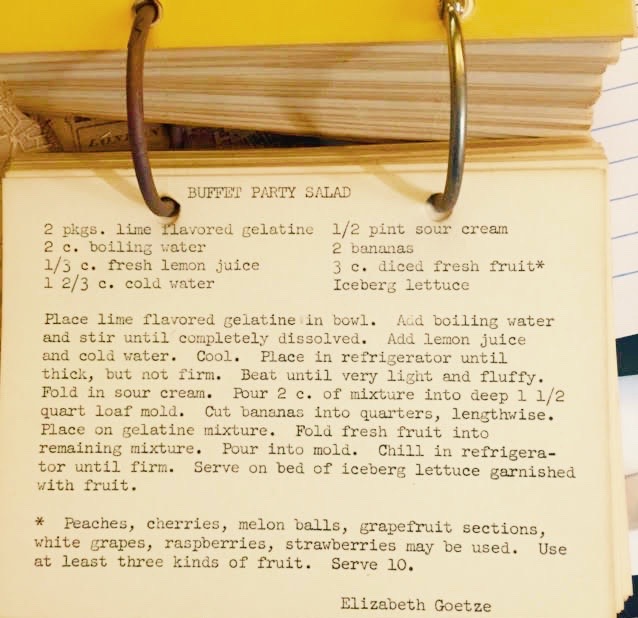 LONDON
BUFFET PARTY SALAD
2 pkgs. lime flavored gelatine
2 c. boiling water
1/3 c. fresh lemon juice
1 2/3 c. cold water
1/2 pint sour cream
2 bananas
3 c. diced fresh fruit*
Iceberg lettuce
Place lime flavored gelatine in bowl. Add boiling water
and stir until completely dissolved. Add lemon juice
and cold water. Cool. Place in refrigerator until
thick, but not firm. Beat until very light and fluffy.
Fold in sour cream. Pour 2 c. of mixture into deep 1 1/2
quart loaf mold. Cut bananas into quarters, lengthwise.
Place on gelatine mixture. Fold fresh fruit into
remaining mixture. Pour into mold. Chill in refrigera-
tor until firm. Serve on bed of iceberg lettuce garnished
with fruit.
* Peaches, cherries, melon balls, grapefruit sections,
white grapes, raspberries, strawberries may be used. Use
at least three kinds of fruit. Serve 10.
Elizabeth Goetze